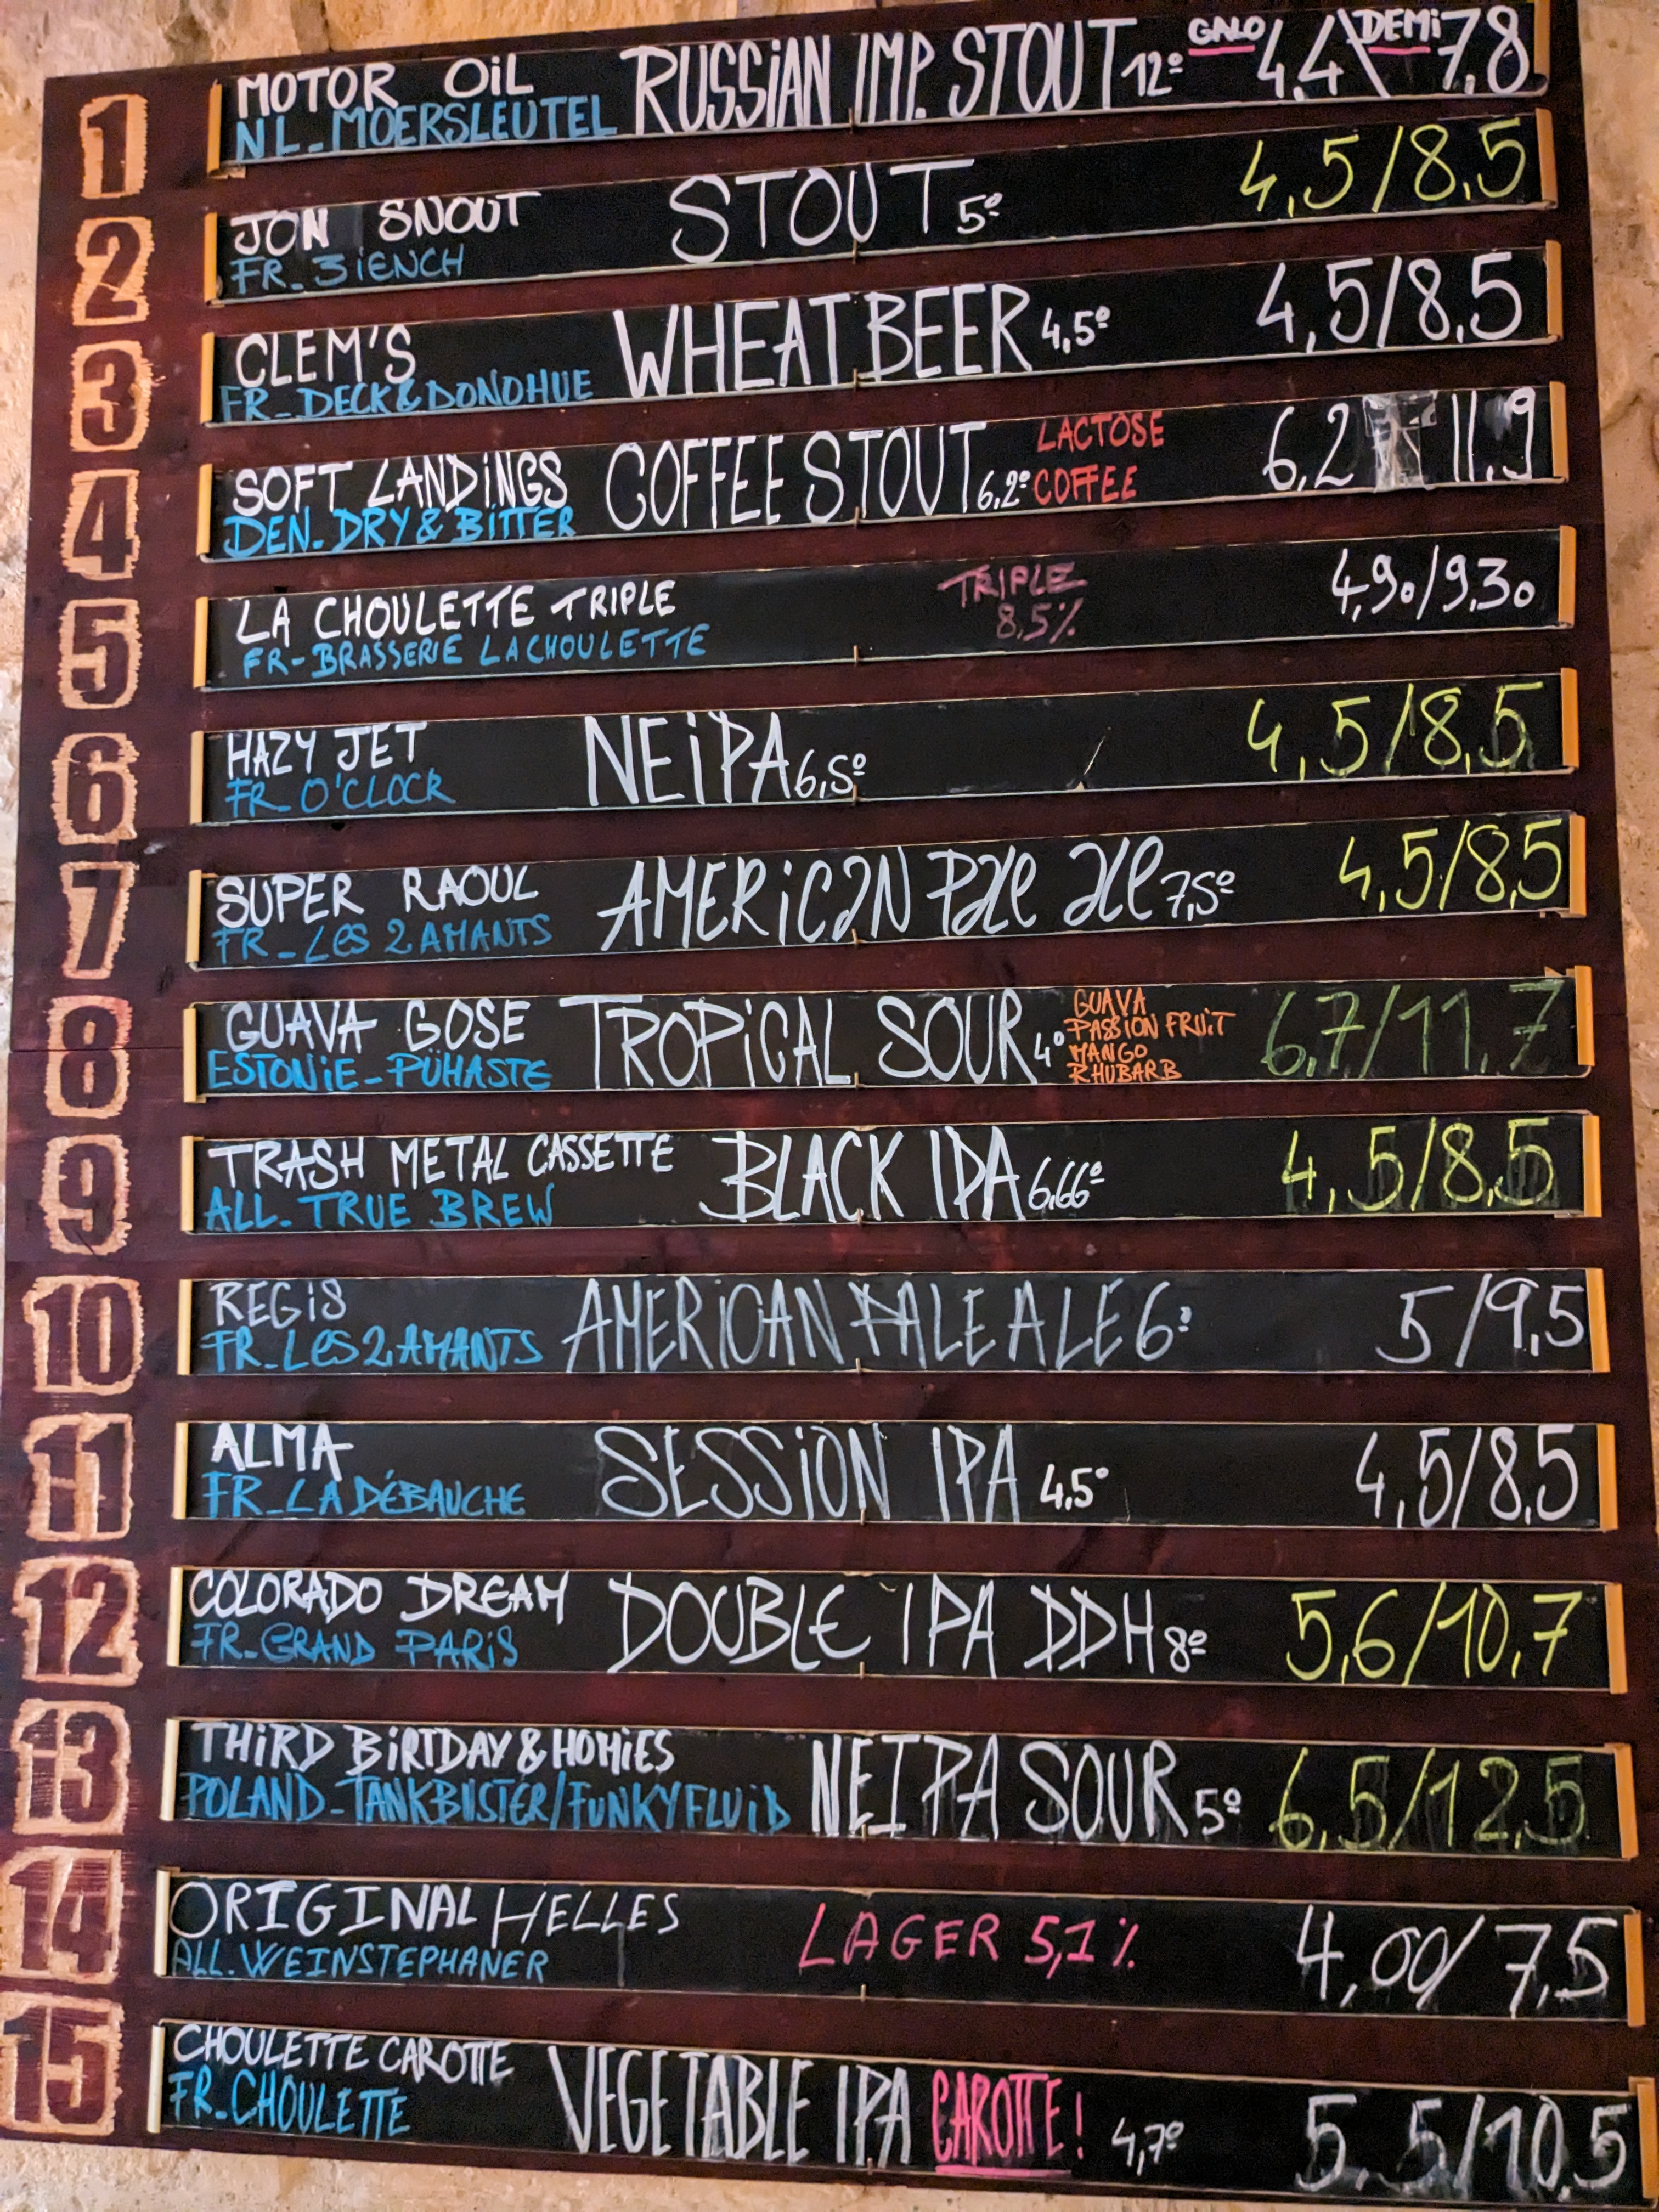 1 MOTOR OiL RUSSiAN IMP. STOUT 12° GALO 4,4 \ DEMi 7,8
NL_MOERSLEUTEL
2 JON SNOUT STOUT 5° 4,5/8,5
FR_3iENCH
3 CLEM'S WHEAT BEER 4,5° 4,5/8,5
FR_DECK&DONOHUE
4 SOFT LANDiNGS COFFEE STOUT 6,2° LACTOSE COFFEE 6,2 11,9
DEN_DRY & BITTER
5 LA CHOULETTE TRIPLE TRIPLE 8,5% 4,90/9,30
FR-BRASSERIE LA CHOULETTE
6 HAZY JET NEiPA 6,5° 4,5/8,5
FR_O'CLOCK
7 SUPER RAOUL AMERiCaN Pale ale 7,5° 4,5/8,5
FR_Les 2 AMANTS
8 GUAVA GOSE TROPiCAL SOUR 4° GUAVA PASSION FRUiT MANGO RHUBARB 6,7/11,7
ESTONiE-PÜHASTE
9 TRASH METAL CASSETTE BLACK IPA 6,66° 4,5/8,5
ALL. TRUE BREW
10 REGiS AMERICAN PALE ALE 6° 5/9,5
FR_Les 2 AMANTS
11 ALMA SESSiON IPA 4,5° 4,5/8,5
FR_LA DÉBAUCHE
12 COLORADO DREAM DOUBLE IPA DDH 8° 5,6/10,7
FR_GRAND PARiS
13 THiRD BiRTDAY & HOMiES NEIPA SOUR 5° 6,5/12,5
POLAND-TANKBUSTER/FUNKYFLUiD
14 ORIGINAL HELLES LAGER 5,1% 4,00/7,5
ALL.WEINSTEPHANER
15 CHOULETTE CAROTTE VEGETABLE IPA CAROTTE! 4,7° 5,5/10,5
FR_CHOULETTE